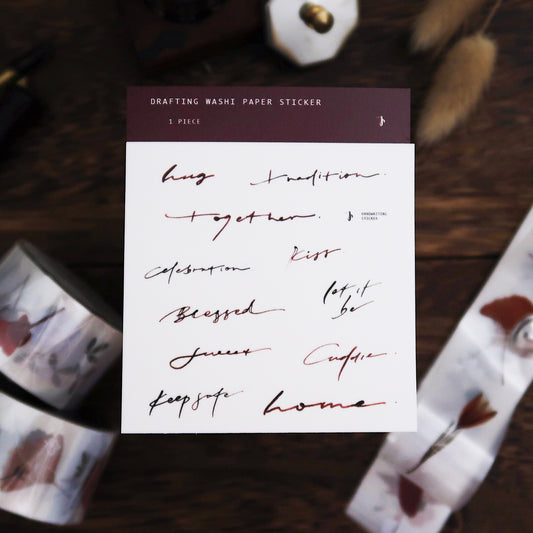 DRAFTING WASHI PAPER STICKER
1 PIECE
hug
tradition.
together.
HANDWRITING
STICKER
Kiss
celebration
let it
be
Blessed
sweet
Cuddle.
Keep safe
home.